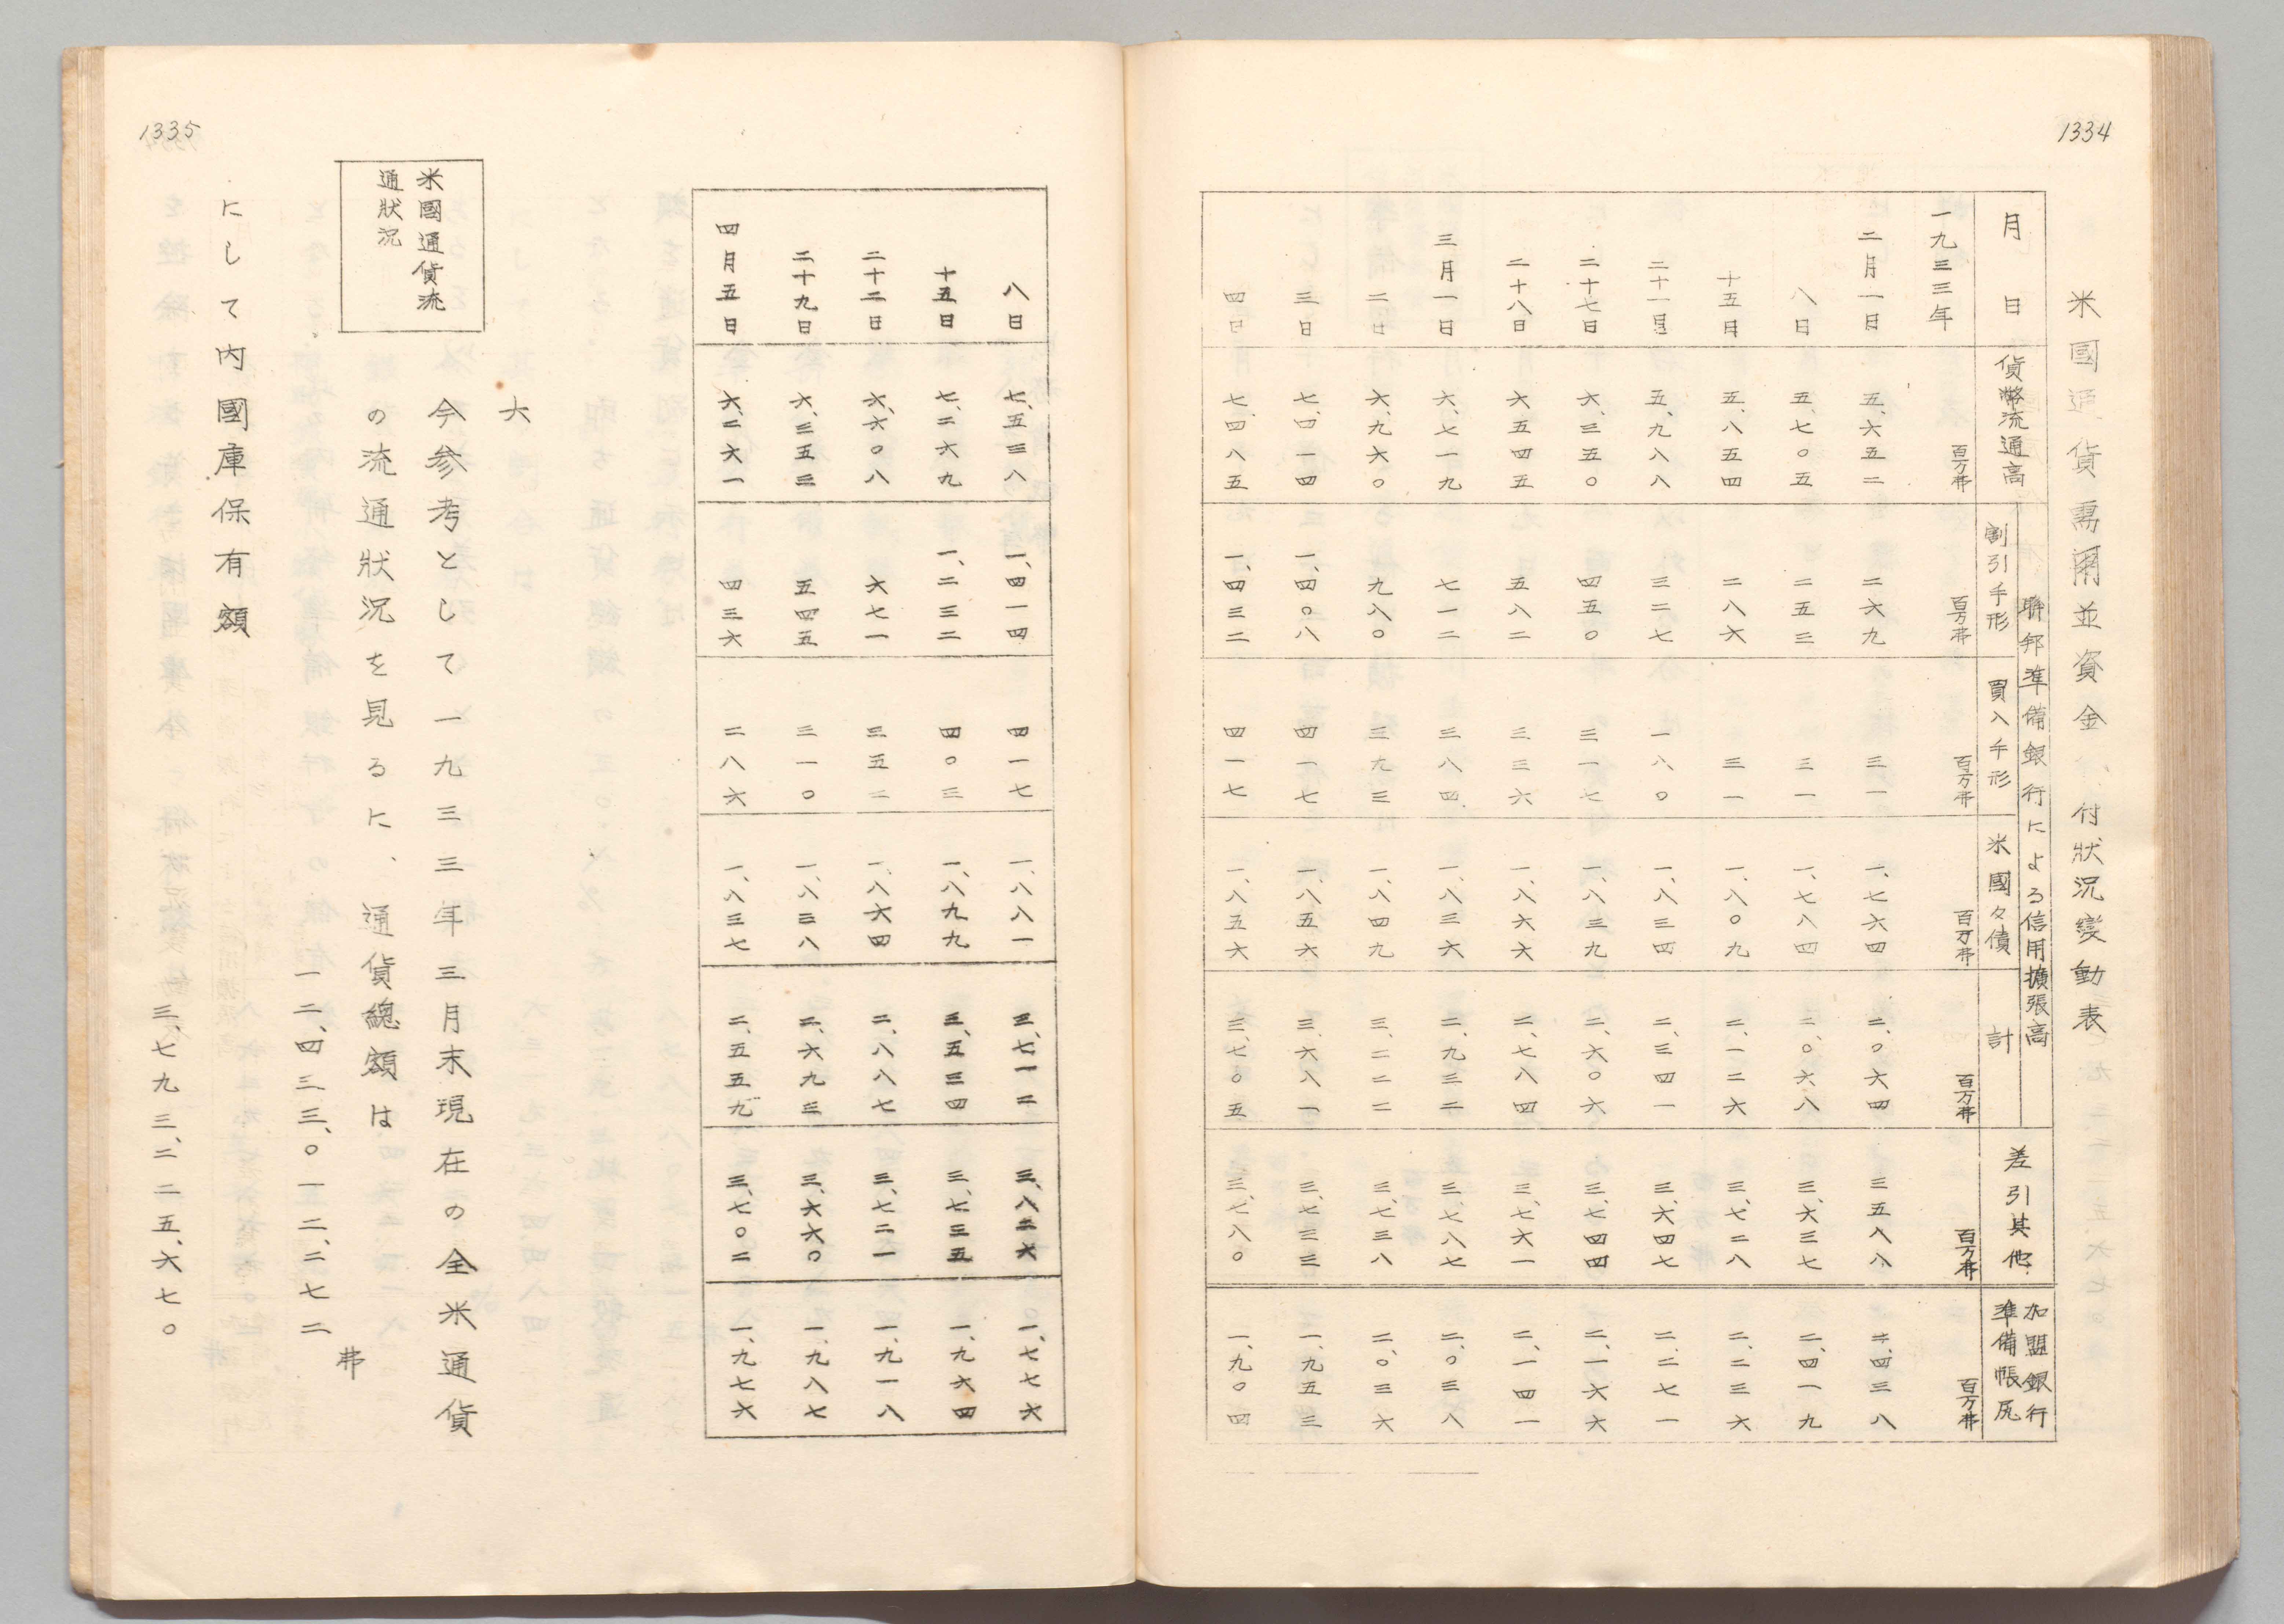 1334
米國通貨需爾並資金付狀況變動表
月日 貨幣流通高 聯邦準備銀行による信用擴張高 差引其他 加盟銀行準備帳尻
割引手形 買入手形 米國々債 計
一九三三年 百万弗 百万弗 百万弗 百万弗 百万弗 百万弗 百万弗
二月一日 五、六五二 二六九 三一 一、七六四 二、〇六四 三五八八 二、四三八
八日 五、七〇五 二五三 三一 一、七八四 二、〇六八 三、六三七 二、四一九
十五日 五、八五四 二八六 三一 一、八〇九 二、一二六 三、七二八 二、二三六
二十一日 五、九八八 三二七 一八〇 一、八三四 二、三四一 三、六四七 二、二七一
二十七日 六、三五〇 四五〇 三一七 一、八三九 二、六〇六 三、七四四 二、一六六
二十八日 六五四五 五八二 三三六 一、八六六 二、七八四 三、七六一 二、一四一
三月一日 六、七一九 七一二 三八四 一、八三六 二、九三二 三、七八七 二、〇三八
二日 六、九六〇 九八〇 三九三 一、八四九 三、二二二 三、七三八 二、〇三六
三日 七、四一四 一、四〇八 四一七 一、八五六 三、六八一 三、七三三 一、九五三
四日 七、四八五 一、四三二 四一七 一、八五六 三、七〇五 三、七八〇 一、九〇四
1335
八日 七、五三八 一、四一四 四一七 一、八八一 三、七一二 三、八二六 一、七七六
十五日 七、二六九 一、二三二 四〇三 一、八九九 三、五三四 三、七三五 一、九六四
二十二日 六、六〇八 六七一 三五二 一、八六四 二、八八七 三、七二一 一、九一八
二十九日 六、三五三 五四五 三一〇 一、八三八 二、六九三 三、六六〇 一、九八七
四月五日 六、二六一 四三六 二八六 一、八三七 二、五五九 三、七〇二 一、九七六
六
米國通貨流
通狀況
今参考として一九三三年三月末現在の全米通貨
の流通狀況を見るに、通貨總額は
一二、四三三、〇一二、二七二弗
にして内國庫保有額
三、七九三、二二五、六七〇